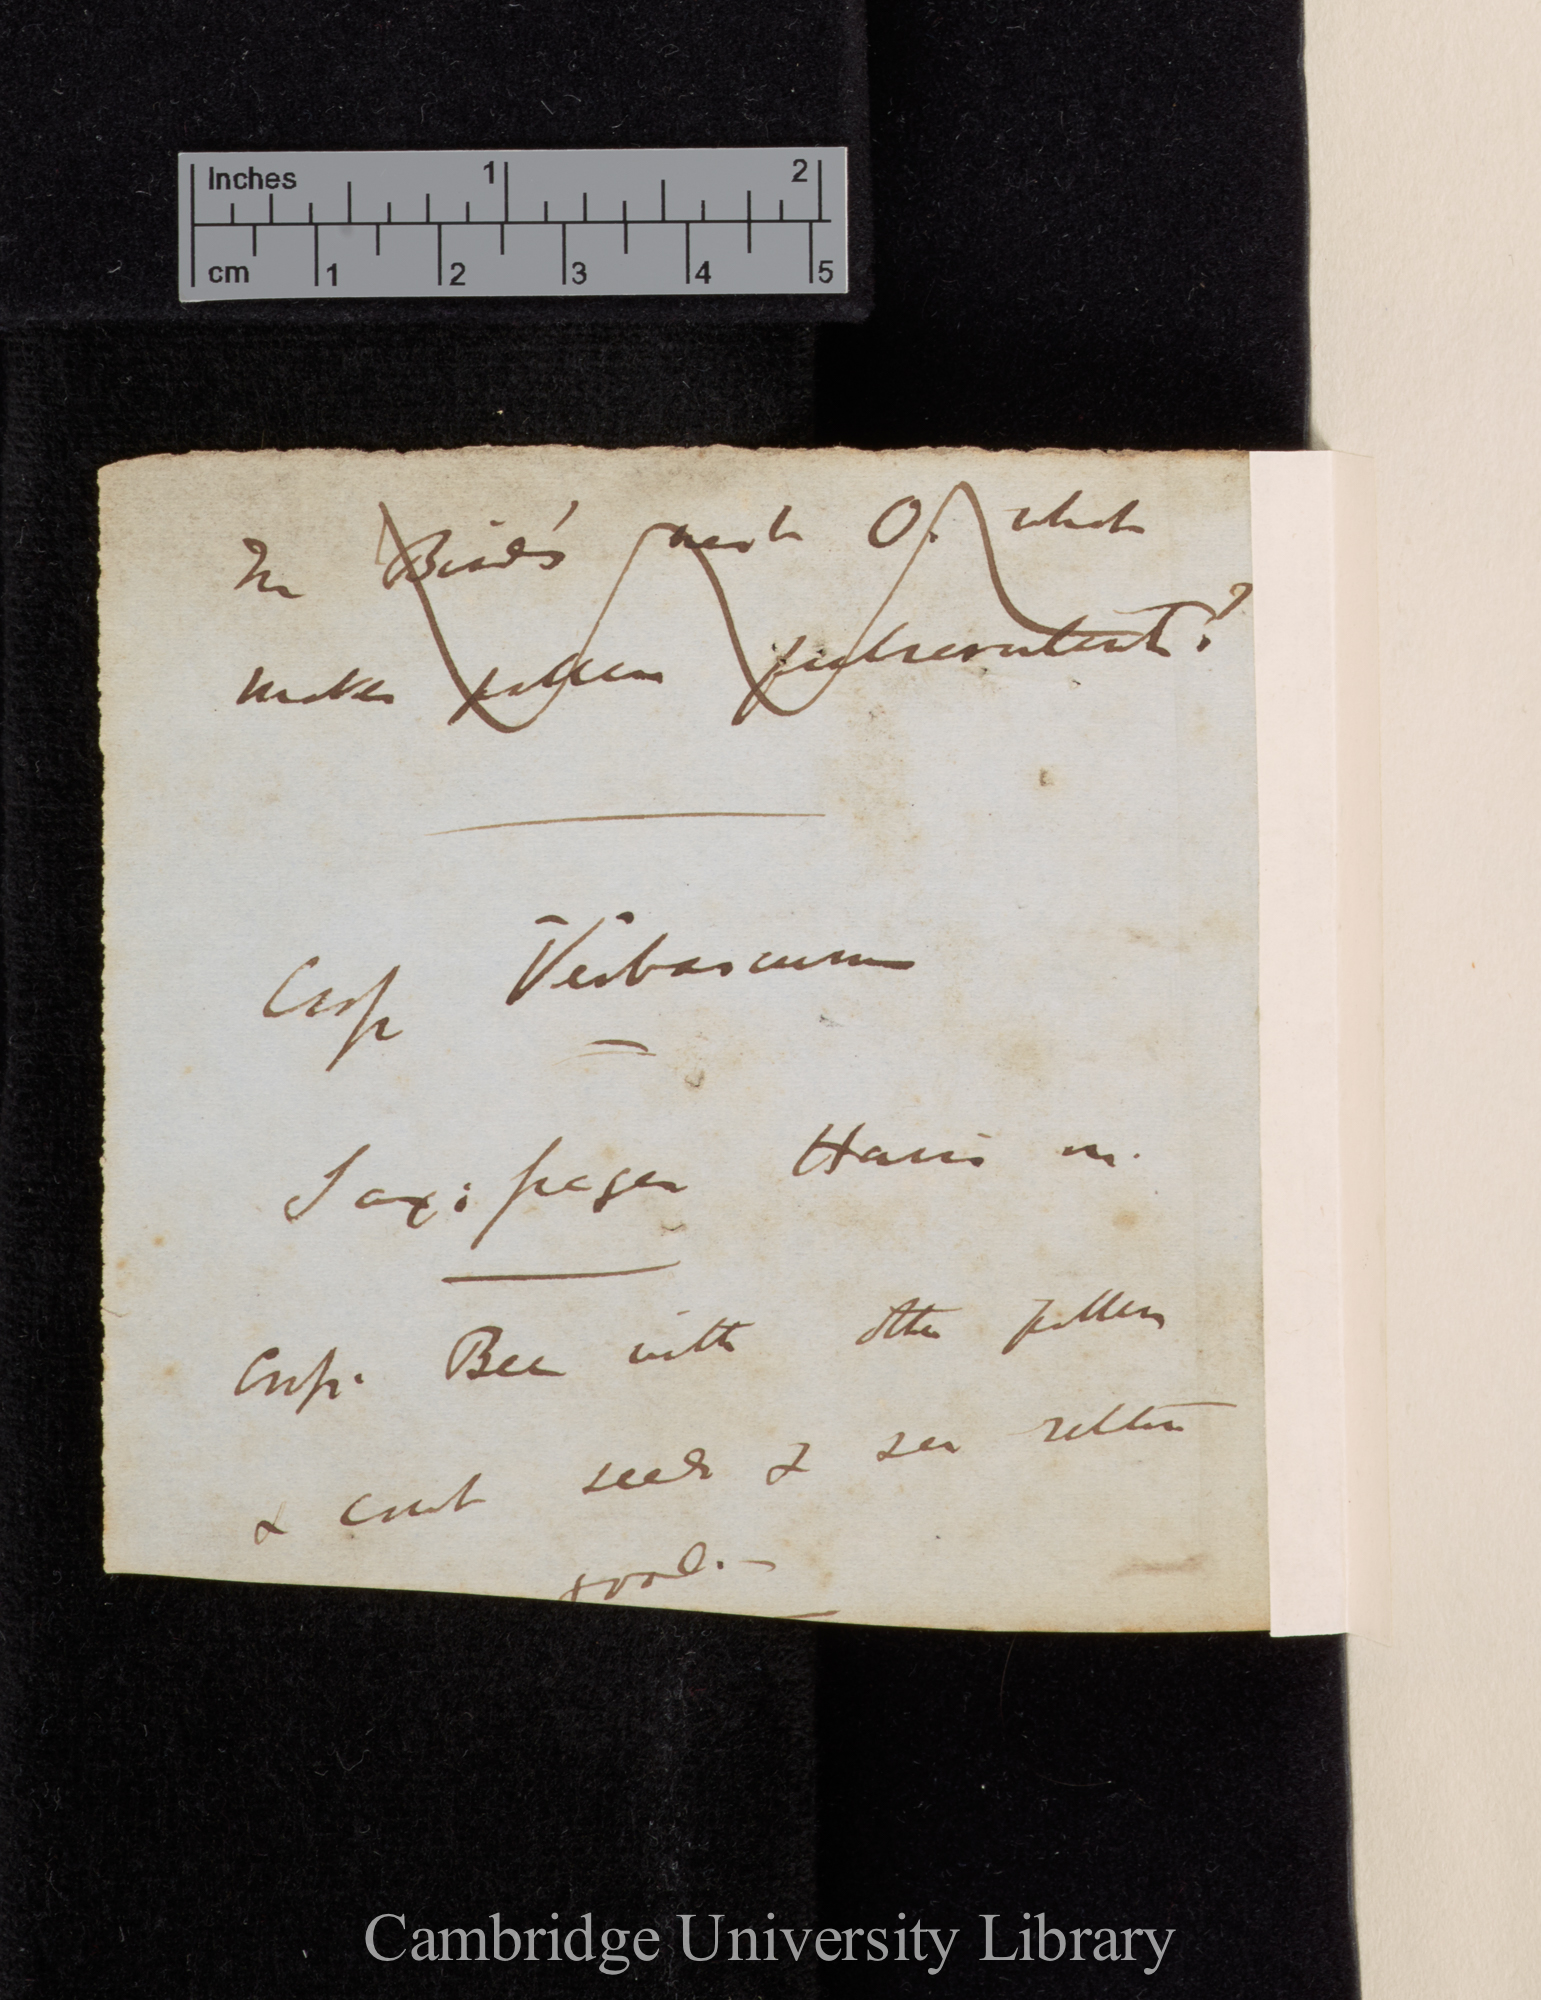 Inches 1 2
cm 1 2 3 4 5
In Bird's nest O. what
makes pollen pulverulent?
Verbascum
Saxifrages Hairs on.
Bee with other pollen
& count seeds & see whether
good.—
Cambridge University Library